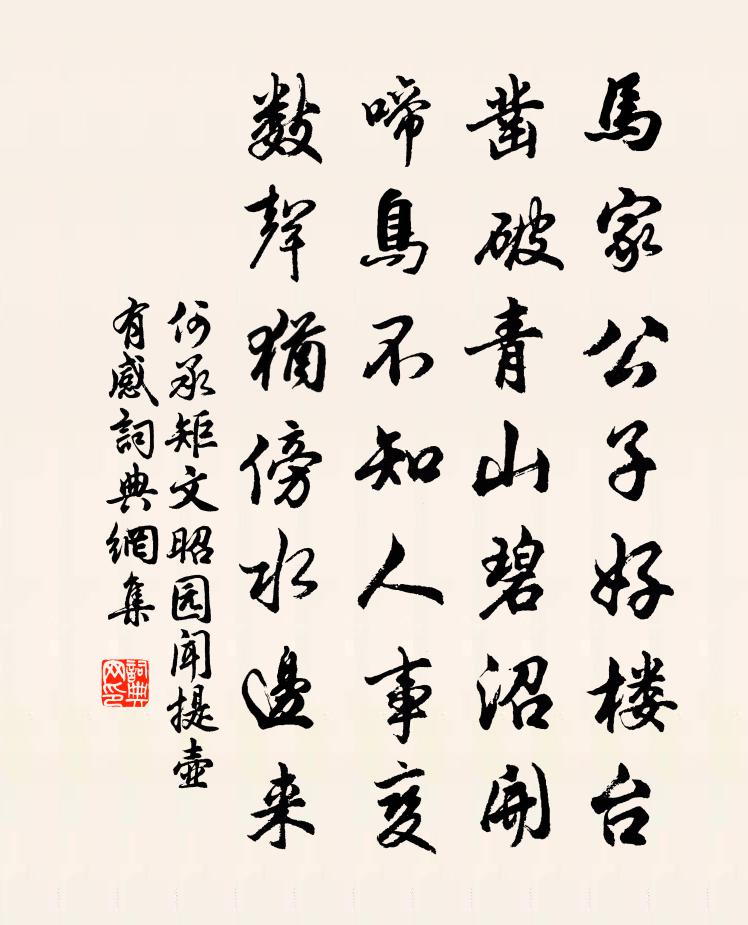 馬家公子好楼台
凿破青山碧沼開
啼鳥不知人事变
数聲猶傍水邊来
何承矩文昭园聞提壶
有感詞典網集
詞典网印